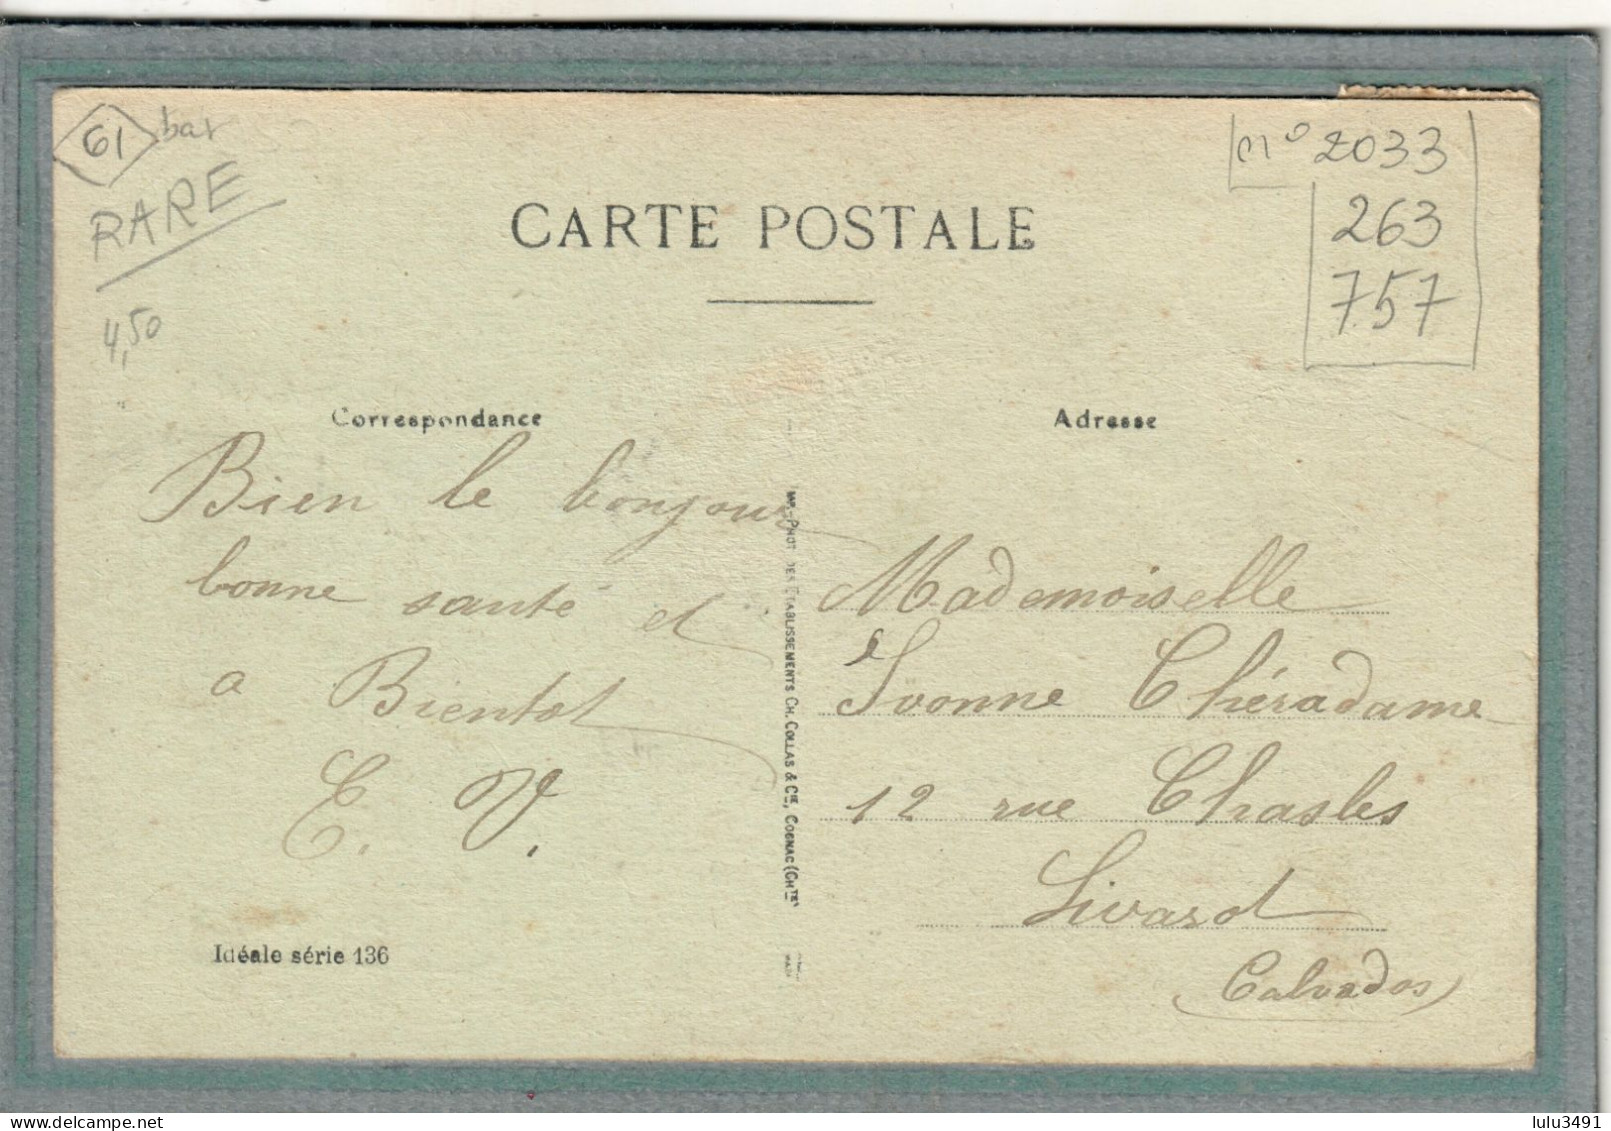 61 bar
RARE
4,50
n° 2033
263
757
CARTE POSTALE
Correspondance
Adresse
Bien le bonjour
bonne santé et
a Bientot
E. V.
Idéale série 136
PHOT. DES ETABLISSEMENTS CH. COLLAS & CIE, COGNAC (CHTE)
Mademoiselle
Yvonne Chéradame
12 rue Chasles
Livarot
(Calvados)
www.delcampe.net
lulu3491